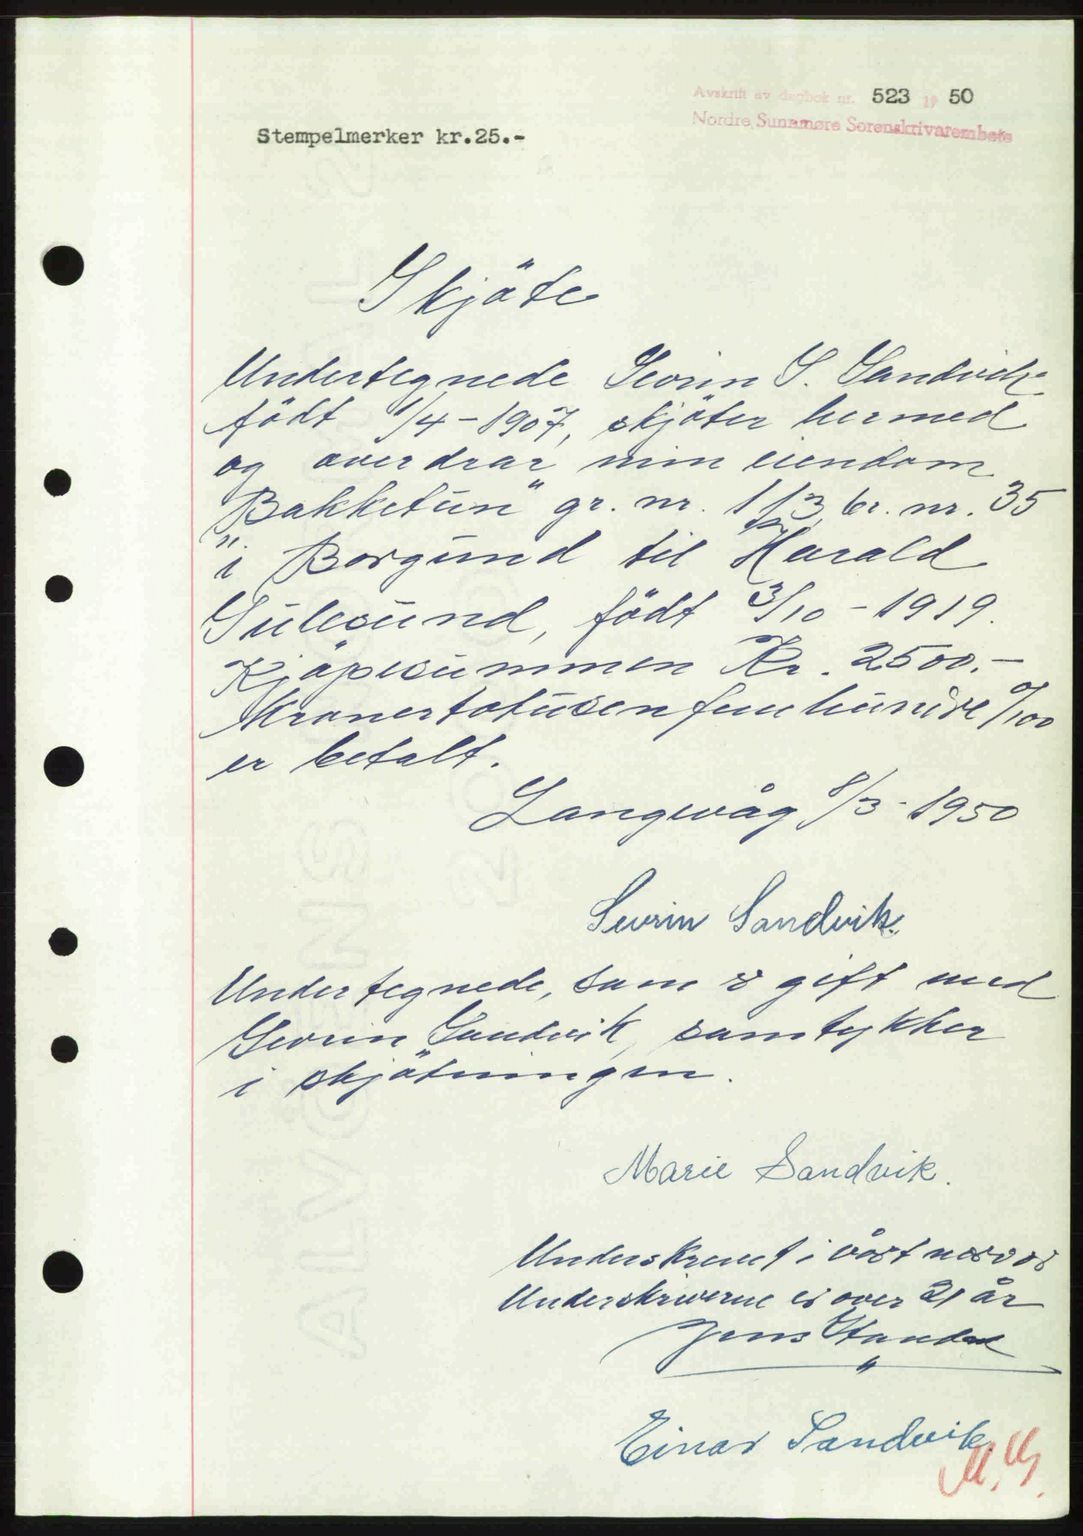 Avskrift av dagbok nr. 523 19 50
Nordre Sunnmøre Sorenskrivarembete
Stempelmerker kr.25.-
Skjöte
Undertegnede Sevrin S. Sandvik
födt 1/4-1907, skjöter hermed
og overdrar min eiendom
"Bakketun" gr. nr. 113 br. nr. 35
i Borgund til Harald
Sulesund, födt 3/10-1919.
Kjöpesummen Kr. 2500.-
Kronertotusenfemhundre 0/100
er betalt.
Langevåg 8/3-1950
Sevrin Sandvik.
Undertegnede, som er gift med
Sevrin Sandvik, samtykker
i skjötningen.
Marie Sandvik.
Underskrevet i vårt nærvær
Underskriverne er over 21 år
Jens
Einar Sandvik